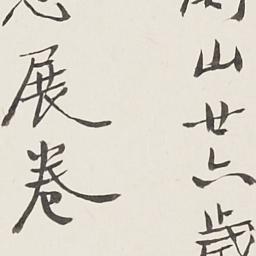 山廿六歲
展卷